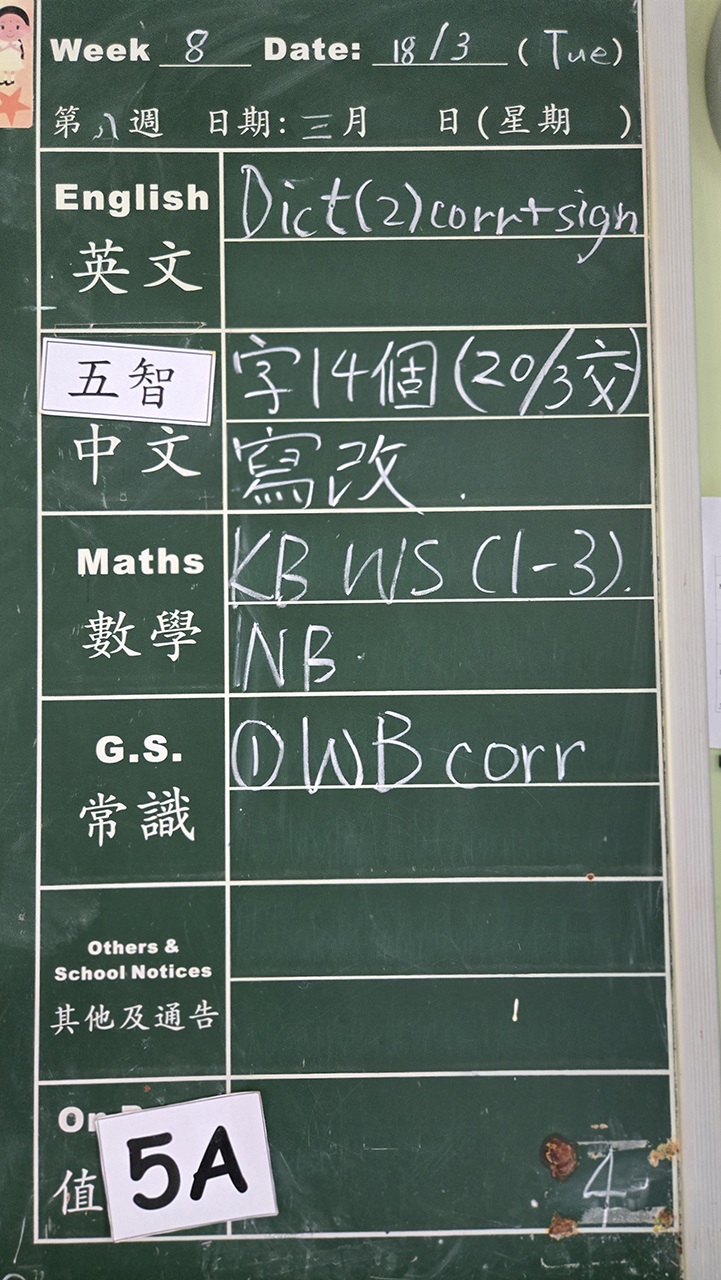 Week 8 Date: 18/3 (Tue)
第八週 日期: 三月 日(星期 )
English Dict(2)corr+sign
英文
五智 字14個(20/3交)
中文 寫改.
Maths KB WS (1-3).
數學 NB
G.S. ①WB corr
常識
Others &
School Notices
其他及通告
On
值 5A 4